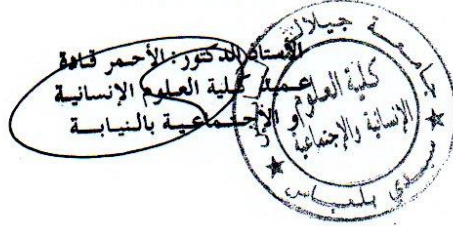 الأستاذ الدكتور: الأحمر قادة
عميد كلية العلوم الإنسانية
و الاجتماعية بالنيابة
جامعة جيلالي
كلية العلوم
الإنسانية والإجتماعية
سيدي بلعباس